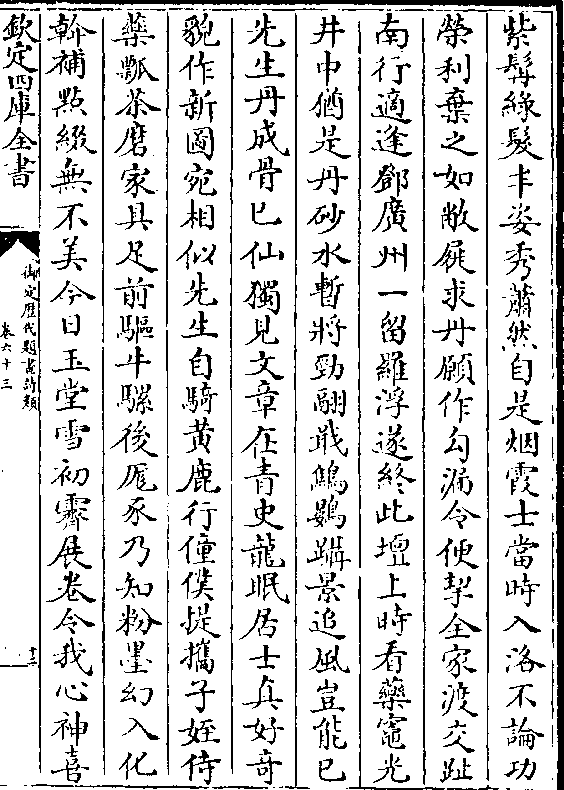 紫髯緑髮丰姿秀蕭然自是烟霞士當時入洛不論功
榮利棄之如敝屣求丹願作勾漏令便挈全家渡交趾
南行適逢鄧廣州一留羅浮遂終此壇上時看藥竈光
井中猶是丹砂水暫將勁翮戢鷦鷃躡景追風豈能已
先生丹成骨已仙獨見文章在青史龍眠居士真好奇
貌作新圖宛相似先生自騎黄鹿行僮僕提攜子姪侍
藥瓢茶磨家具足前驅牛騾後厖豕乃知粉墨幻入化
幹補點綴無不美今日玉堂雪初霽展卷令我心神喜
欽定四庫全書
御定歴代題畫詩類
卷六十三
十二